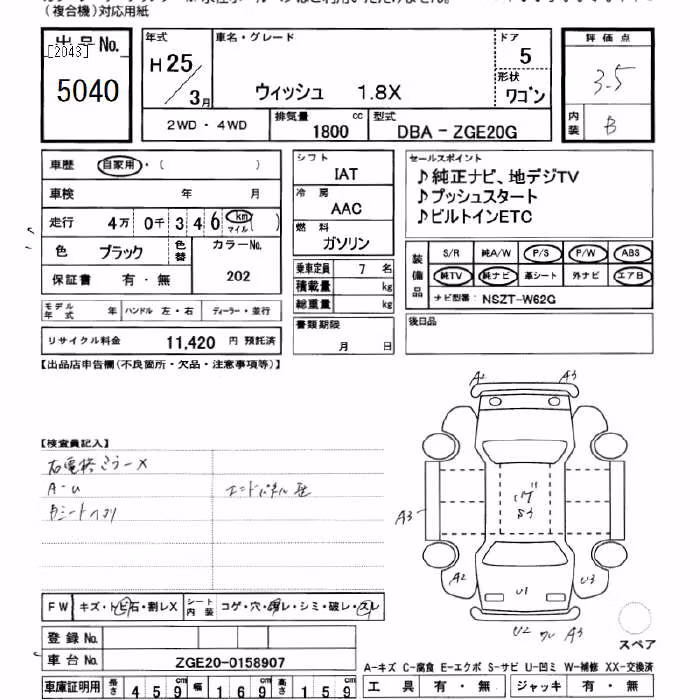 (複合機)対応用紙
出品No.
[2043]
5040
年式
H25/3月
車名・グレード
ウィッシュ 1.8X
ドア
5
形状
ワゴン
評価点
3.5
内装
B
2WD・4WD
排気量
1800 cc
型式
DBA-ZGE20G
車歴 自家用・( )
車検 年 月
走行 4万 0千 3 4 6 km マイル ( )
色 ブラック 色替 カラーNo. 202
保証書 有・無
モデル年式 年 ハンドル 左・右 ディーラー・並行
リサイクル料金 11,420 円 預託済
シフト IAT
冷房 AAC
燃料 ガソリン
乗車定員 7 名
積載量 kg
総重量 kg
書類期限
月 日
セールスポイント
♪純正ナビ、地デジTV
♪プッシュスタート
♪ビルトインETC
装備品
S/R 純A/W P/S P/W ABS
純TV 純ナビ 革シート 外ナビ エアB
ナビ型番: NSZT-W62G
後日品
【出品店申告欄(不良箇所・欠品・注意事項等)】
【検査員記入】
A-U
A2 A3
A3
A2
U1
U3
U2 A3
スペア
FW キズ・トビ石・割レX シート内装 コゲ・穴・切レ・シミ・破レ・スレ
登録No.
車台No. ZGE20-0158907
車庫証明用 長さ 459cm 幅 169cm 高さ 159cm
A-キズ C-腐食 E-エクボ S-サビ U-凹ミ W-補修 XX-交換済
工具 有・無 ジャッキ 有・無